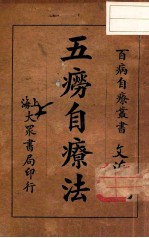 百病自療叢書
五癆自療法
上海大眾書局印行